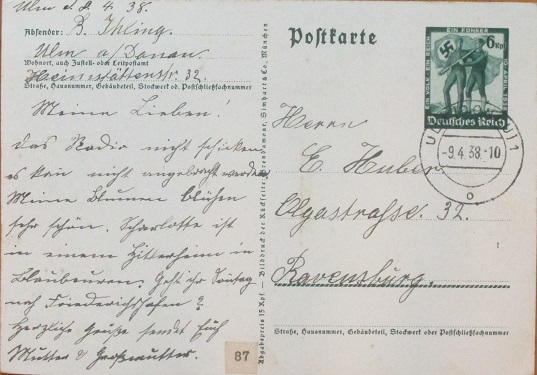 Ulm a. d. 4. 38.
Absender: B. Ihling.
Ulm a/Donau.
Wohnort, auch Zustell- oder Leitpostamt
Heimstättenstr. 32.
Straße, Hausnummer, Gebäudeteil, Stockwerk od. Postschließfachnummer
Meine Lieben!
das Radio nicht schicken
es kan nicht angebracht werden
Meine Blumen blühen
sehr schön. Scharlotte ist
in einem Hitlerheim in
Blaubeuren. Geht ihr Sontag
nach Friederichshafen?
Herzliche Grüße sendet Euch
Mutter u Großmutter.
87
Abgabepreis 15 Rpf. - Bilddruck der Rückseite: Simhart & Co., München
Postkarte
EIN FÜHRER
EIN VOLK EIN REICH
10. APRIL 1938
6 Rpf
Deutsches Reich
ULM (DONAU) 1
-9.4.38-10
o
Herrn
E. Huber
Olgastrasse. 32.
Ravensburg.
Straße, Hausnummer, Gebäudeteil, Stockwerk oder Postschließfachnummer